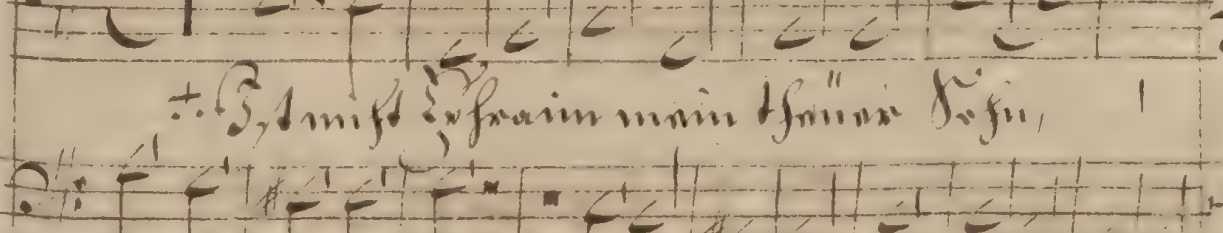 ÷. Ist nicht Ephraim mein theüer Sohn,